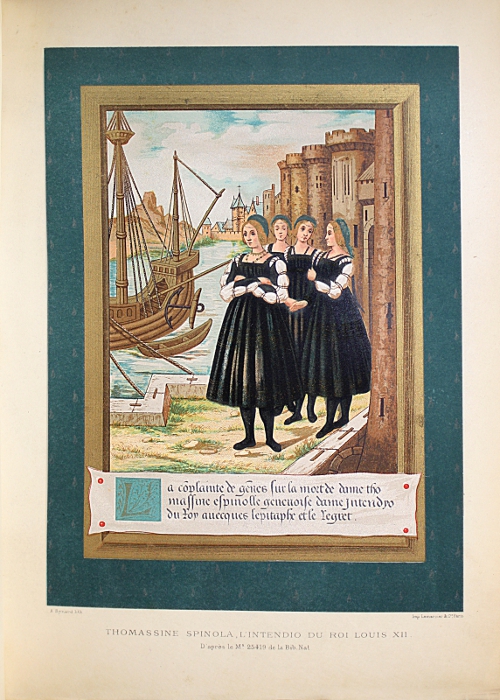 La cōplainte de gēnes sur la mort de dame tho
massine espinolle genenoise dame intendyo
du Roy auecques lepitaphe et le Regret.
Imp. Lemercier & Cie Paris
THOMASSINE SPINOLA, L'INTENDIO DU ROI LOUIS XII.
D'après le Ms 25419 de la Bib. Nat.